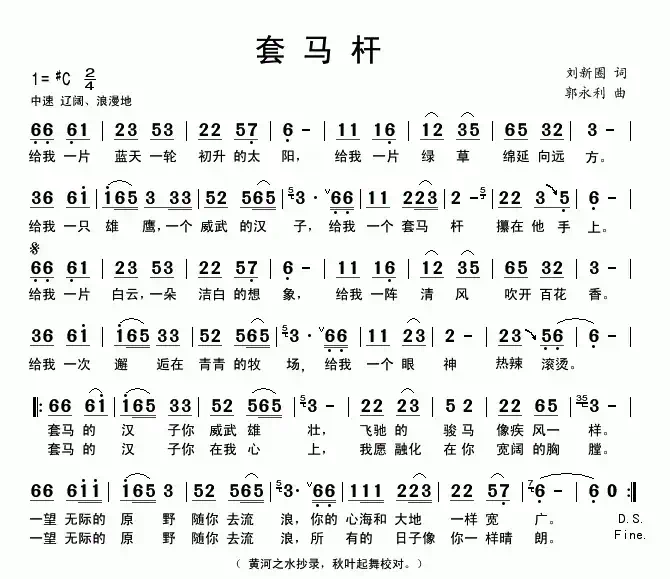 套马杆
1=#C 2/4
刘新圈 词
中速 辽阔、浪漫地
郭永利 曲
66 61 | 23 53 | 22 57 | 6 - | 11 16 | 12 35 | 65 32 | 3 - |
给我 一片 蓝天 一轮 初升 的太 阳， 给我 一片 绿 草 绵延 向远 方。
36 61 | 165 3 33 | 52 565 | 3 · 66 | 11 223 | 2 - | 22 3 5 | 6 - |
给我 一只 雄 鹰,一个 威武 的汉 子, 给我 一个 套马 杆 攥在 他 手 上。
66 61 | 23 53 | 22 57 | 6 - | 11 16 | 12 35 | 65 32 | 3 - |
给我 一片 白云,一朵 洁白 的想 象， 给我 一阵 清 风 吹开 百花 香。
36 61 | 165 33 | 52 565 | 3 · 66 | 11 23 | 2 - | 23 56 | 6 - |
给我 一次 邂 逅在 青青 的牧 场, 给我 一个 眼 神 热辣 滚烫。
|: 66 61 | 165 33 | 52 565 | 3 - | 22 23 | 5 2 | 22 65 | 3 - |
套马 的 汉 子你 威武 雄 壮， 飞驰 的 骏 马 像疾 风一 样。
套马 的 汉 子你 在我 心 上， 我愿 融化 在 你 宽阔 的胸 膛。
66 611 | 165 3 | 52 565 | 3· 66 | 111 223 | 22 57 | 6 - | 6 0 :|
一望 无际的 原 野 随你 去流 浪，你的 心海和 大地 一样 宽 广。 D.S.
一望 无际的 原 野 随你 去流 浪，所 有的 日子像 你一 样晴 朗。 Fine.
（ 黄河之水抄录，秋叶起舞校对。）